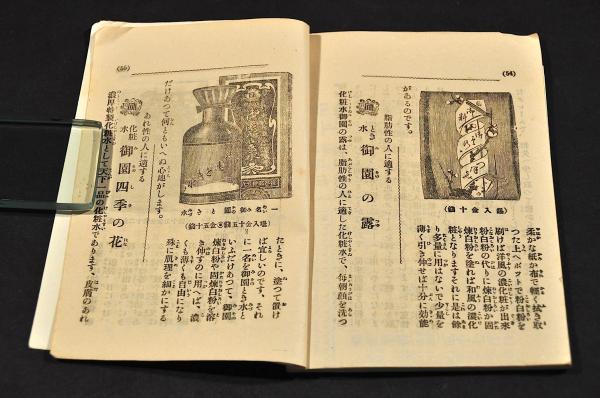 (54)
柔かな紙か布で輕く拭き取
つた上へポツトで粉白粉を
刷けば洋風の濃化粧が出來
粉白粉の代りに煉白粉か固
煉白粉を塗れば和風の濃化
粧となりますそれに是は餘
り多量に用はないで少量を
薄く引き伸せば十分に効能
があるのです。
脂肪性の人に適する
とき水 御園の露
化粧水御園の露は、脂肪性の人に適した化粧水で、毎朝顔を洗つ
(55)
一名御園とき水
たときに、塗つて置け
ば宜しいのです、それ
に一名を御園とき水と
いふだけあつて、御園
煉白粉や固煉白粉を溶
き伸すのに用へば、濃
くも薄くも自由になり
殊に肌理を細かにする
だけあつて何ともいへぬ心地がします。
あれ性の人に適する
化粧水 御園四季の花
濃厚特製化粧水として天下一品の化粧水であります、皮膚のあれ